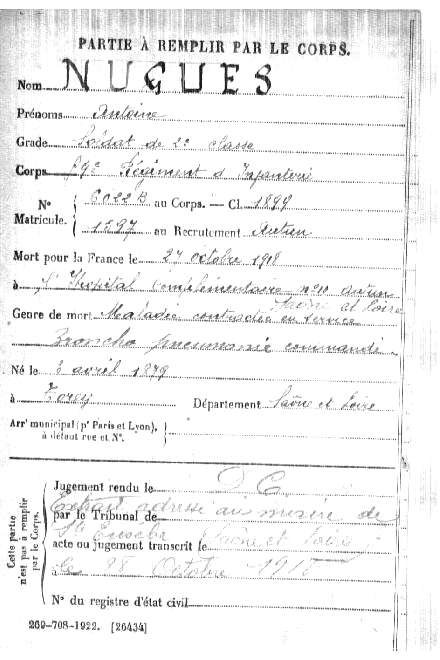 PARTIE À REMPLIR PAR LE CORPS.
Nom NUGUES
Prénoms Antoine
Grade Soldat de 2e classe
Corps 79e Régiment d'Infanterie
N° 6022 B au Corps. — Cl. 1899
Matricule. 1597 au Recrutement Autun
Mort pour la France le 27 octobre 1918
à l'Hopital complémentaire n°10 Autun
Saône et Loire
Genre de mort Maladie contractée en service
Broncho pneumonie
Né le 3 avril 1879
à Torcy Département Saône et Loire
Arrt municipal (pr Paris et Lyon),
à défaut rue et N°.
Cette partie
n'est pas à remplir
par le Corps.
Jugement rendu le D C
Extrait adressé au maire de
par le Tribunal de
St Eusèbe Saône et Loire
acte ou jugement transcrit le
le 28 Octobre
N° du registre d'état civil
269-708-1922. [26434]